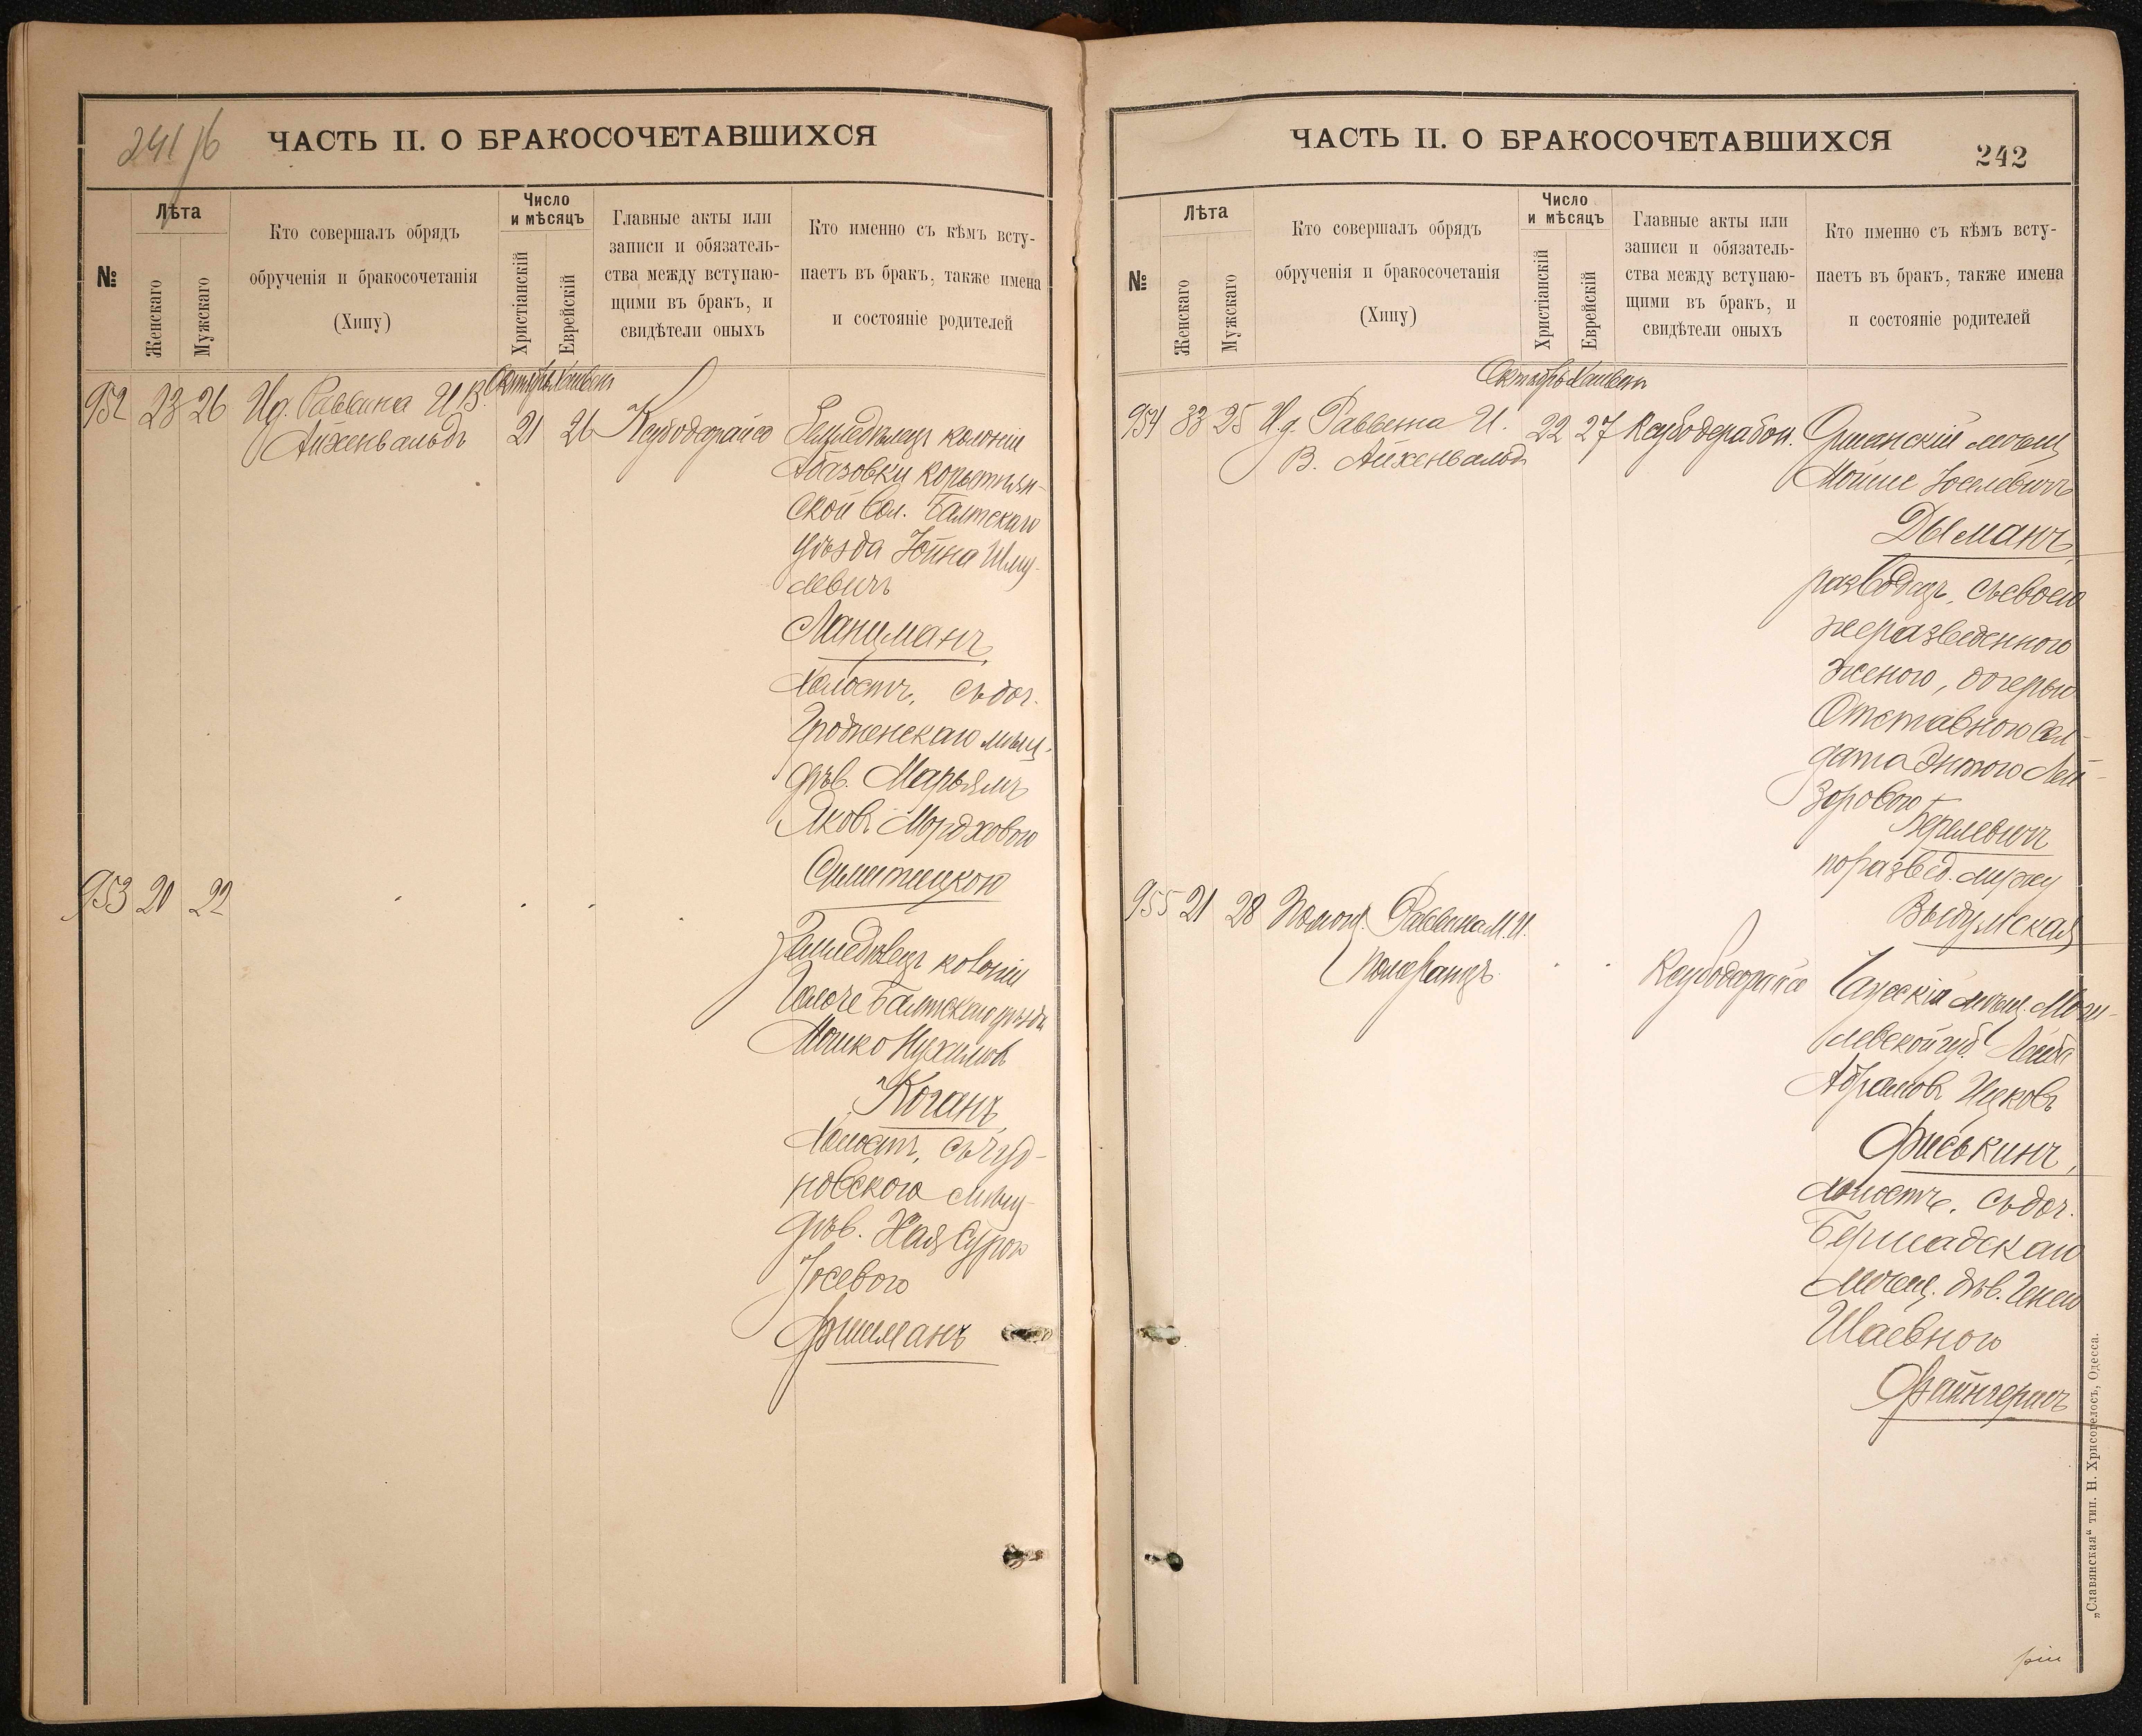 241/б
ЧАСТЬ II. О БРАКОСОЧЕТАВШИХСЯ
№
Лѣта
Женскаго
Мужскаго
Кто совершалъ обрядъ
обрученія и бракосочетанія
(Хипу)
Число
и мѣсяцъ
Христіанскій
Еврейскій
Главные акты или
записи и обязатель-
ства между вступаю-
щими въ бракъ, и
свидѣтели оныхъ
Кто именно съ кѣмъ всту-
паетъ въ бракъ, также имена
и состояніе родителей
Октябрь Хешвен
952 23 26 И.д. Раввина И.В.
Айхенвальдъ
21 26 Ксубодорайсо
Земледѣлецъ колоніи
Абазовки корытнян-
ской Вол. Балтскаго
уѣзда Іойна Шму-
левичъ
Ланцманъ,
холостъ, съ доч.
Гродненскаго мѣщ.
дѣв. Марьямъ
Яковъ Мордховою
Симятицкою
953 20 22
Земледѣлецъ колоніи
Балтскаго уѣзда
Мошко Нухимов
Коганъ,
холостъ, съ Чуд-
новскою мѣщ.
дѣв. Хая Сурою
Іосевою
Фишманъ
ЧАСТЬ II. О БРАКОСОЧЕТАВШИХСЯ
242
№
Лѣта
Женскаго
Мужскаго
Кто совершалъ обрядъ
обрученія и бракосочетанія
(Хипу)
Число
и мѣсяцъ
Христіанскій
Еврейскій
Главные акты или
записи и обязатель-
ства между вступаю-
щими въ бракъ, и
свидѣтели оныхъ
Кто именно съ кѣмъ всту-
паетъ въ бракъ, также имена
и состояніе родителей
Октябрь Хешвен
954 33 25 И.д. Раввина И.
В. Айхенвальдъ
22 27 Ксубодерабон.
Оршанскій мѣщ.
Мойше Іоселевичъ
Дыманъ,
разводецъ, съ своею
же разведенною
женою, дочерью
Отставного Сол-
дата Энтою Лей-
зоровою
Берелевичъ
по развед. мужу
Выдумская
955 21 28 Помощ. Раввина М.И.
Померанцъ
Ксубодорайсо
Чаусскій мѣщ. Моги-
левской губ. Лейб
Абрамовъ Ицковъ
Фиськинъ,
холостъ, съ доч.
Бершадскаго
мѣщ. дѣв. Генею
Шаевною
Файнгершъ
„Славянская“ тип. Н. Хрисогелосъ, Одесса.